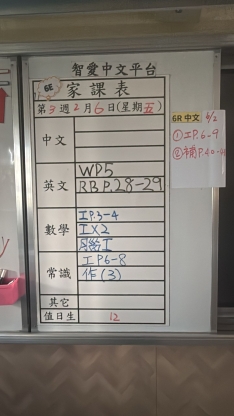 智愛中文平台
6E
家課表
第3週2月6日(星期五)
中文
英文
WP5
RB P.28-29
數學
工P.3-4
工X2
常識
工P6-8
作(3)
其它
值日生
12
6R 中文 6/2
①工P.6-9